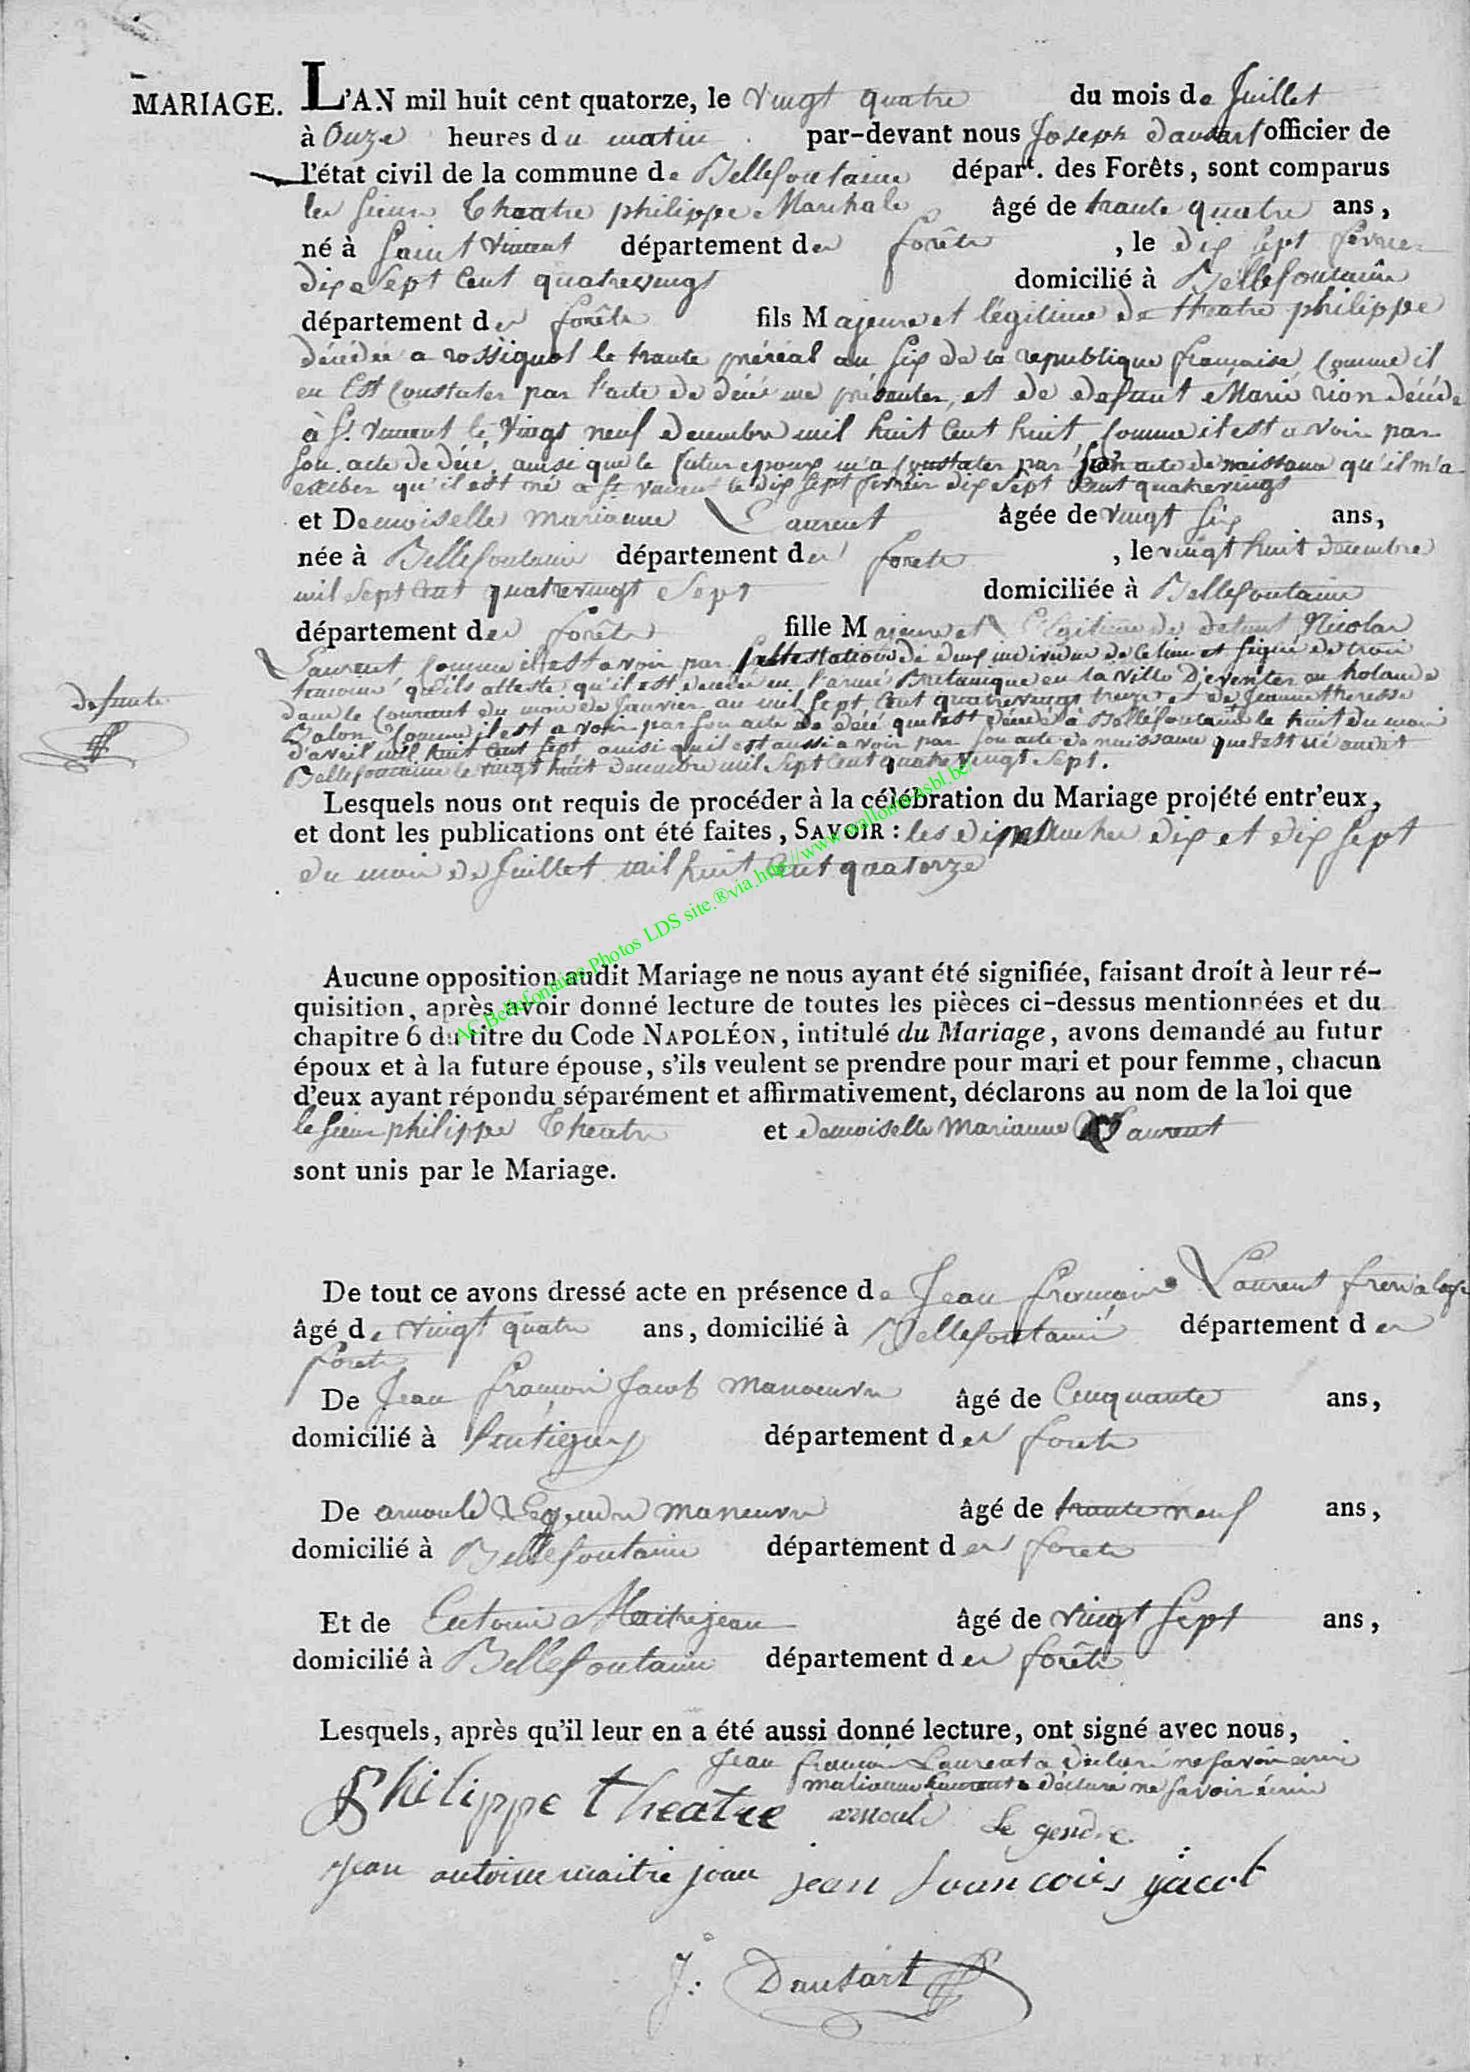 MARIAGE. L'AN mil huit cent quatorze, le vingt quatre du mois de Juillet
à Onze heures du matin par-devant nous Joseph dausart officier de
l'état civil de la commune de Bellefontaine dépar^t. des Forêts, sont comparus
les sieur Theatre philippe Marchale âgé de trante quatre ans,
né à Saint vincent département des forêts, le dix sept fevrier
dix sept Cent quatrevingt domicilié à Bellefontaine
département des forêts fils Majeure et légitime de theatre philippe
décédée a rossignol le trante préréal an six de la republique française, Comme il
en Est Constater par l'acte de décé me présenter, et de defunt Marie rion décéde
à S^t. vincent le Vingt neuf decembre mil huit Cent huit, Comme il est a voir par
son acte de décé, ainsi que le futur epoux m'a Constater par son acte de naissance qu'il m'a
exiber qu'il est né a S^t vincent le dix sept fevrier dix sept Cent quatrevings
et Demoiselle marianne Laurent âgée de vingt six ans,
née à Bellefontaine département des forets, le vingt huit decembre
mil sept Cent quatrevingt sept domiciliée à Bellefontaine
département des forêts fille Majeure et Légitime de defunt Nicolas
Laurent Comme il est a voir par l'attestation de deux individue de Ce lieu et signé de trois
temoins qu'ils atteste qu'il est decedé en l'armé Britanique en la ville D'eventer en holande
dans le Courant du mois de Janvier an mil sept Cent quatrevingt treize et de Jeanne theresse
defunte
Balon Comme il est a voir par son acte de décé quelest décédé à Bellefontaine le huit du mois
d'avril mil huit Cent sept ainsi qu'il est aussi a voir par son acte de naissance quelest né audit
Bellefontaine le vingt huit decembre mil sept Cent quatre vingt sept.
Lesquels nous ont requis de procéder à la célébration du Mariage projété entr'eux,
et dont les publications ont été faites, SAVOIR : les dimanches dix et dix sept
du mois de Juillet mil huit Cent quatorze
AC.Bellefontaine.Photos LDS site.®via.http://www.wallonia-asbl.be/
Aucune opposition audit Mariage ne nous ayant été signifiée, faisant droit à leur ré-
quisition, après avoir donné lecture de toutes les pièces ci-dessus mentionnées et du
chapitre 6 du titre du Code NAPOLÉON, intitulé du Mariage, avons demandé au futur
époux et à la future épouse, s'ils veulent se prendre pour mari et pour femme, chacun
d'eux ayant répondu séparément et affirmativement, déclarons au nom de la loi que
le sieur philippe Theatre et demoiselle Marianne Laurent
sont unis par le Mariage.
De tout ce avons dressé acte en présence de Jean francois Laurent frere a
âgé de vingt quatre ans, domicilié à Bellefontaine département des
forets
De Jean françois Jacob manoeuvre âgé de Cinquante ans,
domicilié à Lentigny département des forets
De arnould Legendre maneuvre âgé de trante neuf ans,
domicilié à Bellefontaine département des forets
Et de Entoine Maitrejean âgé de vingt sept ans,
domicilié à Bellefontaine département des forêts
Lesquels, après qu'il leur en a été aussi donné lecture, ont signé avec nous,
Jean francois Laurent a déclaré ne savoir ecrire
marianne Laurent a déclaré ne savoir écrire
Philippe theatre arnould Le gendre
Jean antoine maitre jean jean francois jacob
J: Dausart